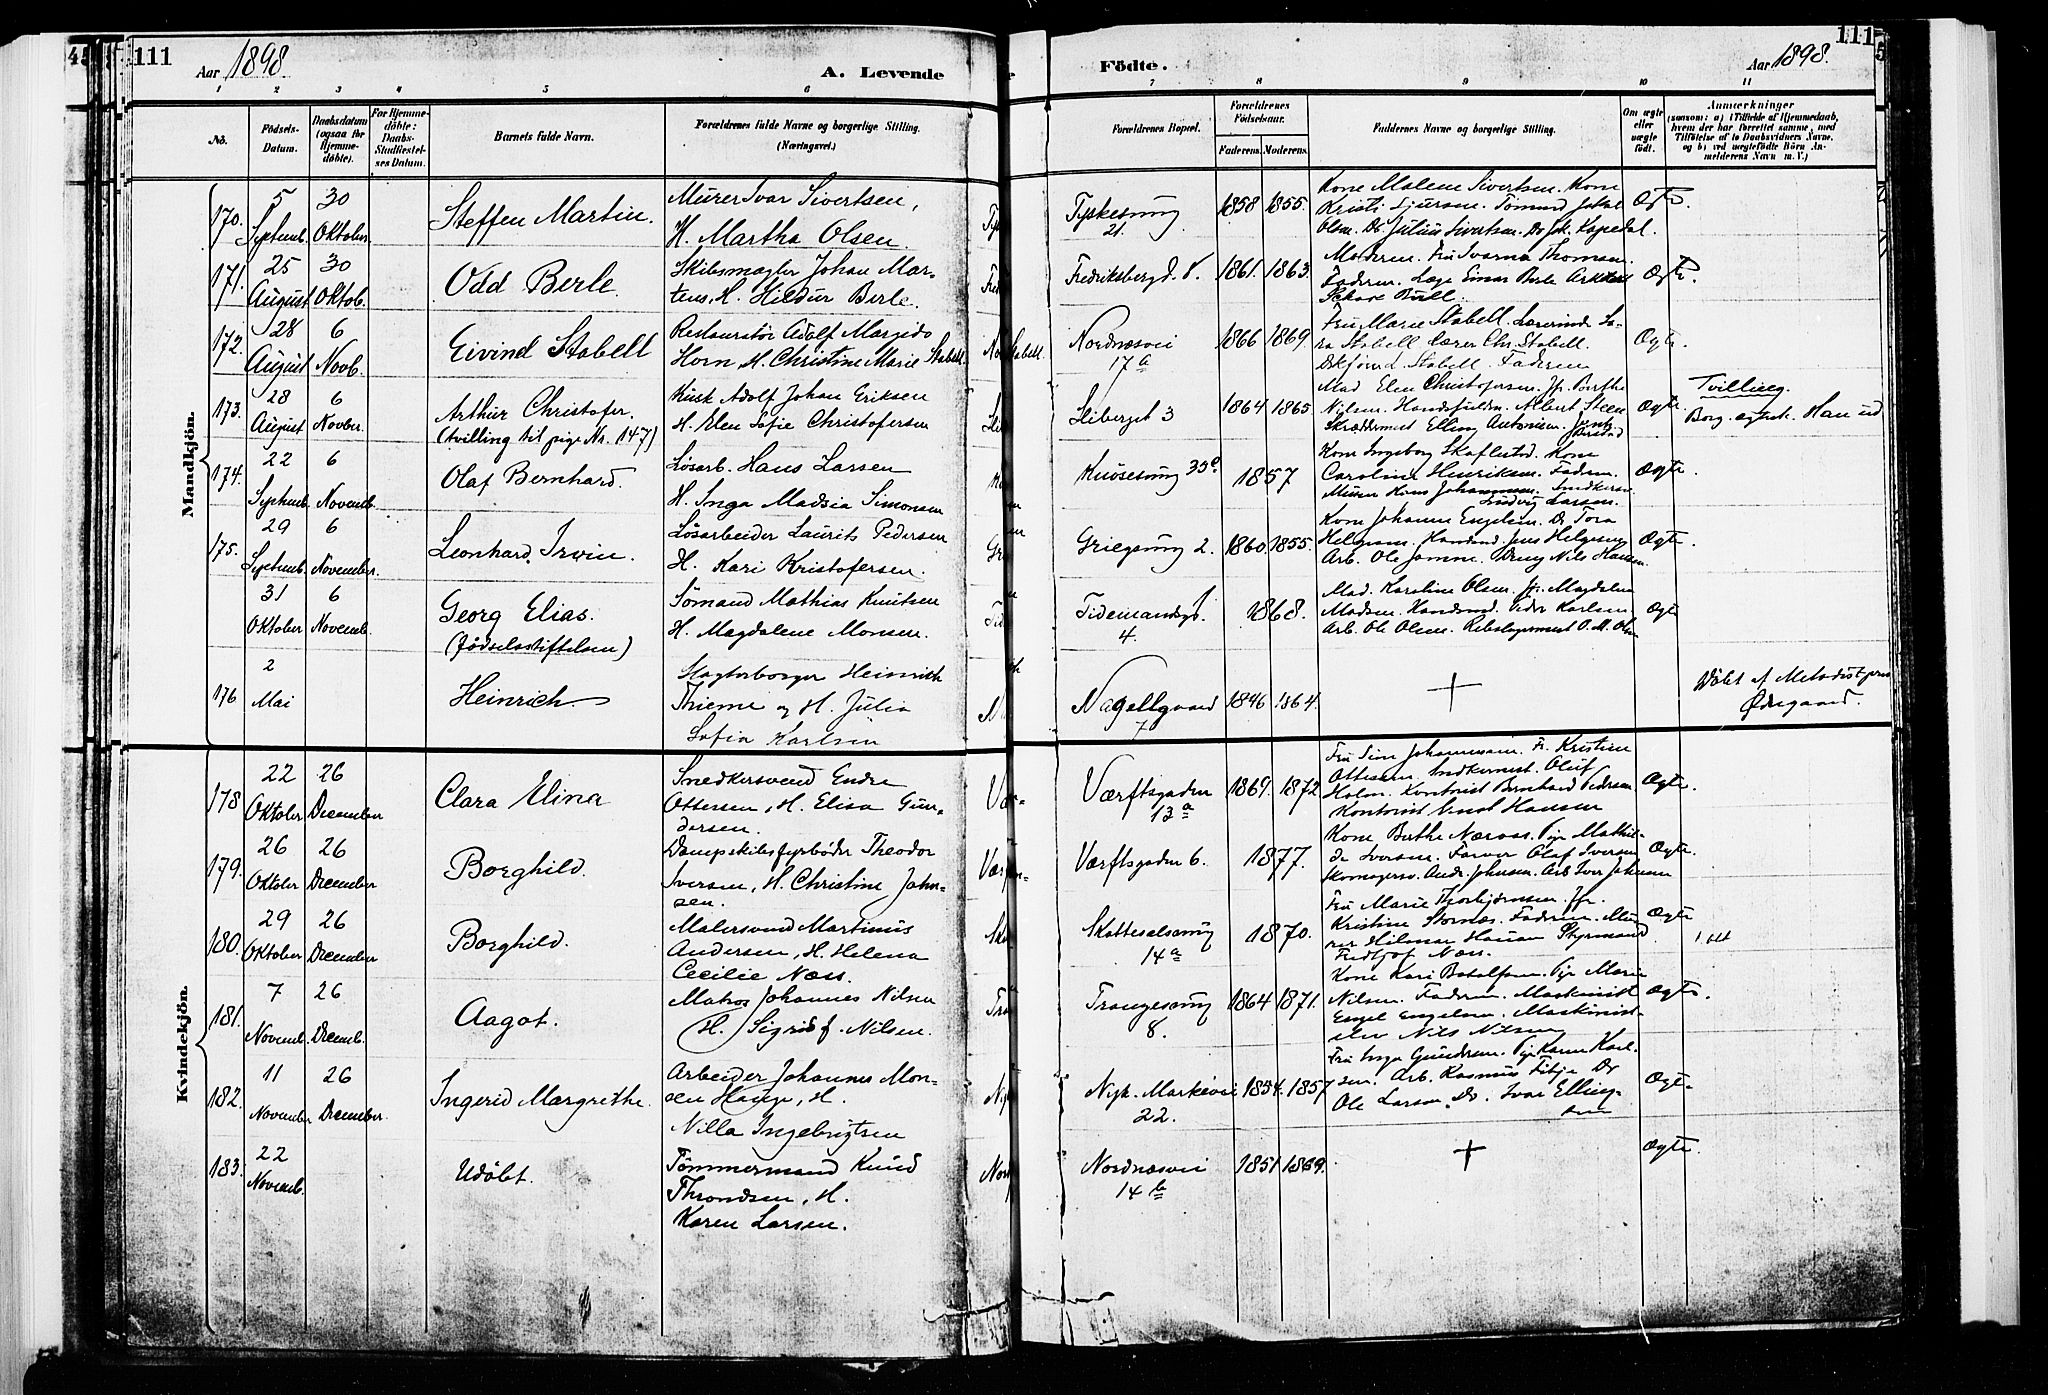 111
Aar 1898
A. Levende
Födte.
Aar 1898.
111
1 2 3 4 5 6
7 8 9 10 11
No.
Födsels-
Datum.
Daabsdatum
(ogsaa for
Hjemme-
döbte).
For Hjemme-
döbte:
Daabs-
Stadfæstel-
ses Datum.
Barnets fulde Navn.
Forældrenes fulde Navne og borgerlige Stilling.
(Næringsvei.)
Forældrenes Bopæl.
Forældrenes
Födselsaar.
Faderens. Moderens.
Faddernes Navne og borgerlige Stilling.
Om ægte
eller
uægte
födt.
Anmærkninger
(saasom: a) i Tilfælde af Hjemmedaab,
hvem der har forrettet samme, med
Tilföielse af to Daabsvidners Navne.
og b) ved uægtefödte Börn An-
melderens Navn m. V.)
Mandkjön.
170. 5 Septemb. 30 Oktober. Steffen Martin.
Murer Ivar Sivertsen,
H. Martha Olsen.
Tyskesmug
21.
1858 1855.
Kone Malene Sivertsen. Kone
Kristi Sjursen. Tömmd Jakob
Olsen. Dr. Julius Sivertsen. Dr. Joh. Kapedal.
Ægte.
171. 25 August 30 Oktob. Odd Berle.
Skibsmægler Johan Mar-
tens, H. Hildur Berle.
Fredriksbergd. 8.
1861. 1863.
Moderen. Fru Svarna Thomsen.
Faderen. Læge Einar Berle Arkitekt
Schak Bull.
Ægte.
172. 28 August 6 Novb. Eivind Stabell
Restauratör Adolf Margido
Horn H. Christine Marie Stabell.
Nordnæsvei
17 b
1866 1869.
Fru Marie Stabell. Lærerinde La-
ra Stabell Lærer Chr. Stabell.
Stabell. Faderen
Ægte.
173. 28 August 6 Novber. Arthur Christofer.
(tvilling til pige Nr. 147)
Kusk Adolf Johan Eriksen
H. Elen Sofie Christofersen
Sliberget 3
1864 1865
Mad Elen Christofersen. Jfr. Berthe
Nielsen. Albert Steen
Skræddermest Elling Antonisen.
Ægte
Tvilling.
174. 22 Septemb. 6 Novemb. Olaf Bernhard.
Lösarb. Hans Larsen
H. Inga Madsia Simonsen
Knösesmug 35
1857
Kone Ingeborg Skaflestad. Kone
Caroline Henriksen. Faderen.
Murer Hans Johannesen. Snedkersv.
Ludvig Larsen.
Ægte.
175. 29 Septemb. 6 November. Leonhard Irvin.
Lösarbeider Laurits Pedersen
H. Kari Kristofersen.
Griegsmug 2.
1860 1855.
Kone Johanne Engelsen. Dr Tora
Helgesen. Handsmd. Jens Helgesen
Arb. Ole Dreng Nils Hansen.
Ægte.
31 Oktober 6 Novemb. Georg Elias.
(födselsstiftelsen)
Sömand Mathias Knutsen
H. Magdalene Monsen.
Tidemandsgd.
4.
1868.
Mad. Karoline Olsen. Jfr. Magdalena
Madsen. Handsmd. Peder Karlsen
Arb. Ole Olsen. Rebslagermest O. M. Olsen
Ægte
176 2 Mai Heinrich
Slagterborger Heinrich
Thieme og H. Julia
Sofia Karlsen
Nagellgaard
7
1846 1864.
+
Döbt af Metodistpræst
Ødegaard.
Kvindekjön.
178 22 Oktober 26 December Clara Elina
Snedkersvend Endre
Ottersen, H. Elisa Gun-
dersen.
Værftsgaden
13 a
1869. 1872.
Fru Sine Johannesen. Fr. Kristine
Ottesen. Snedkermest. Oluf
Holm. Kontorist Bernhard Pedersen
Kontorist Knut Hansen
Ægte.
179. 26 Oktober 26 December Borghild.
Dampskibsfyrböder Theodor
Iversen, H. Christine John-
sen.
Værftsgaden 6.
1877.
Kone Berthe Næraas. Pige Mathil-
de Iversen. Farver Olaf Iversen
Skomagersv. Andr. Johnsen. Arb. Iver Johnsen
Ægte.
180. 29 Oktober 26 December Borghild.
Malersvend Martinus
Andersen, H. Helena
Cecilie Næss.
Skottesalsmug
14 a
1870.
Fru Marie Thorbjörnsen. Jfr.
Kristine Stornæs. Faderen. Mu-
rer Hilmar Hansen Styrmand
Fridtjof Næss.
Ægte
181. 7 Novemb. 26 Decemb. Aagot.
Matros Johannes Nilsen
H. Sigrid f. Nilsen.
Trangesmug
8.
1864 1871.
Kone Kari Botolfsen. Pige Marie
Nilsen. Faderen. Maskinist
Engel Engelsen. Maskinist-
elev Nils Nilsen
Ægte.
182. 11 November 26 December. Ingerid Margrethe.
Arbeider Johannes Mon-
sen Hauge, H.
Nilla Ingebrigtsen
Nyk. Markevei
22.
1854. 1857
Fru Inga Gundersen. Pige Karen Karl-
sen. Arb. Rasmus Fitje Dr
Ole Larsen. Dr. Ivar Elling-
sen
Ægte
183. 22 Novemb. Udöbt.
Tömmermand Knud
Throndsen, H.
Karen Larsen.
Nordnæsvei
14 b
1851 1859.
+
Ægte.